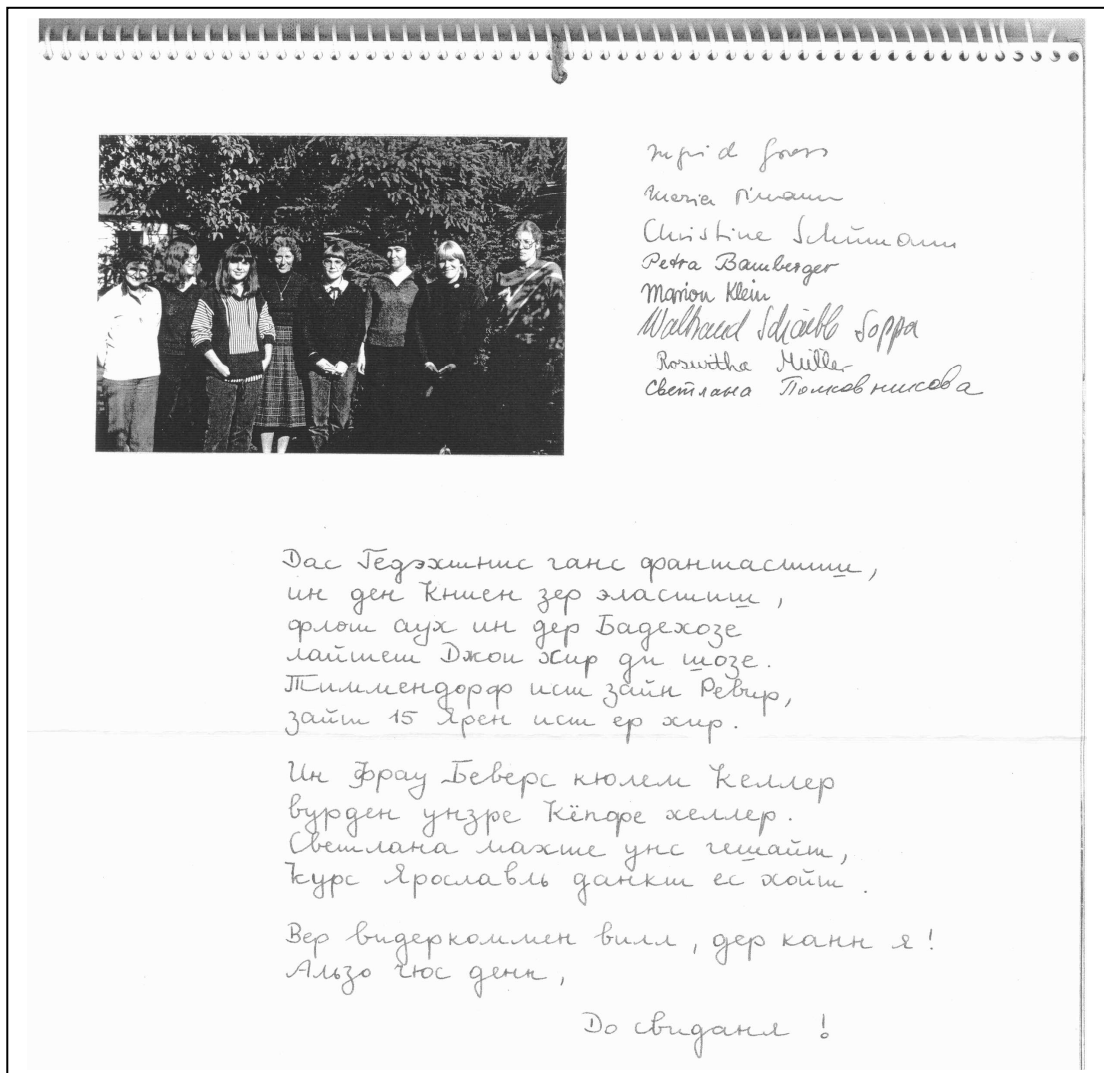 Ingrid Gross
Maria
Christine Schümann
Petra Bamberger
Marion Klein
Waltraud Schäuble Soppa
Roswitha Müller
Светлана Полковникова
Дас Гедэхтнис ганс фантастиш,
ин ден Книен зер эластиш,
флот аух ин дер Бадехозе
лайтет Джон хир ди шозе.
Тиммендорф ист зайн Ревир,
зайт 15 Ярен ист ер хир.
Ин Фрау Беверс кюлем Келлер
вурден унзре Кёпфе хеллер.
Светлана махте унс гешайт,
Курс Ярославль данкт ес хойт.
Вер видеркоммен вилл, дер канн я!
Альзо чюс денн,
До свиданя !